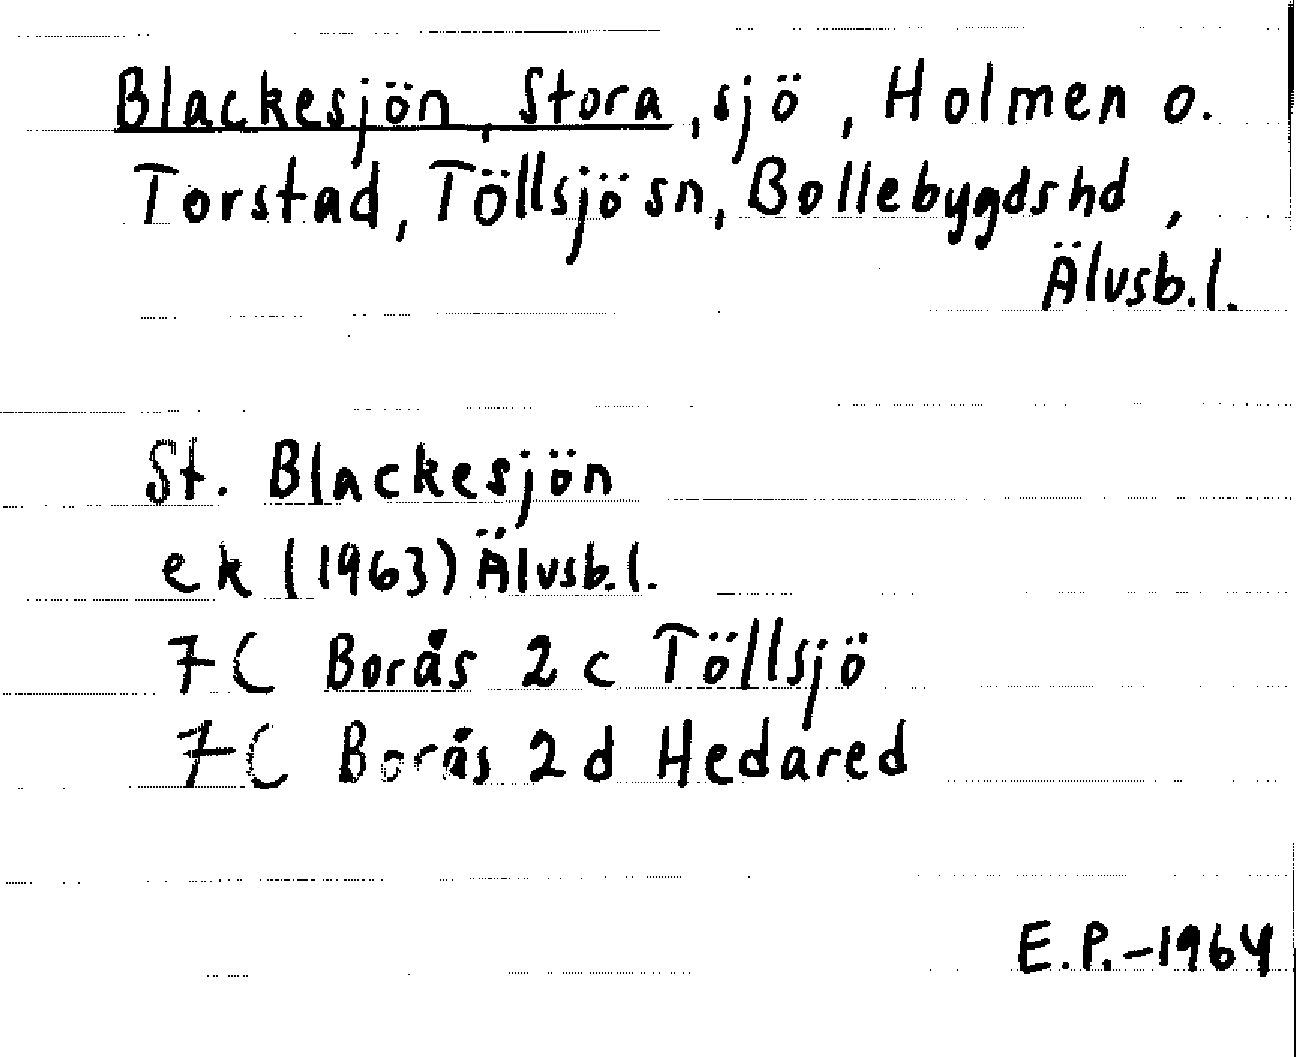 Blackesjön, Stora, sjö, Holmen o.
Torstad, Töllsjö sn, Bollebygds hd,
Älvsb.l.
St. Blackesjön
ek (1963) Älvsb.l.
7C Borås 2c Töllsjö
7C Borås 2d Hedared
E.P.-1964